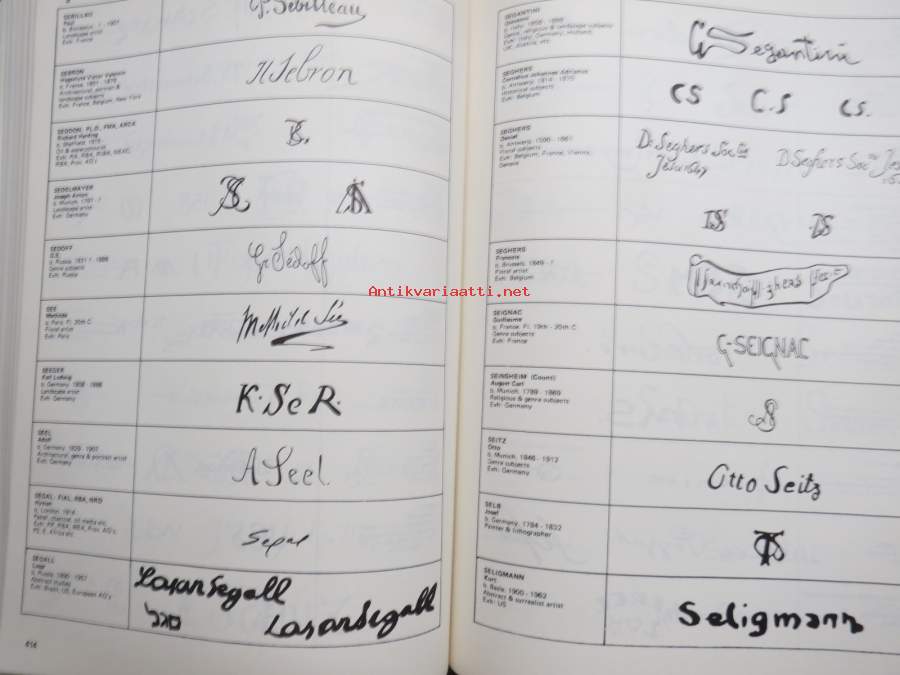 SEBILLEAU
Paul
Landscape artist
Exh: France
G. Sebilleau
SEBRON
Hippolyte Victor Valentin
b. France, 1801 - 1879
Architectural, portrait &
landscape subjects
Exh: France, Belgium, New York
H Sebron
SEDDON, FL.D., FMA, ARCA
Richard Harding
b. Sheffield, 1915 -
Oil & watercolourist
SEDELMAYER
Joseph Anton
b. Munich, 1797 - ?
Landscape artist
Exh: Germany
SEDOFF
G.S.
Genre subjects
Exh: Russia
Gr Sédoff
SEE
Mathilde
b. Paris, Fl. 20th C
Floral artist
Exh: Paris
Mathilde Sée
SEEGER
Karl Ludwig
b. Germany, 1808 - 1866
Landscape artist
Exh: Germany
K. Se R.
SEEL
Adolf
b. Germany, 1829 - 1907
Architectural, genre & portrait artist
Exh: Germany
A Seel
SEGAL, FIAL, RBA, NRD
Hyman
b. London, 1914 -
Segal
SEGALL
Lasar
Abstract studies
Exh: Brazil, US, European AG's
Lasar Segall
סגל
Lasar Segall
414
SEGANTINI
Giovanni
Genre, religious & landscape subjects
Exh: Italy, Germany, Holland,
UK, Austria, etc
G Segantini
SEGHERS
Cornelius Johannes Adrianus
b. Antwerp, 1814 - 1875
Historical subjects
Exh: Belgium
CS C.S CS.
SEGHERS
Daniel
b. Antwerp, 1590 - 1661
Floral subjects
Exh: Belgium, France, Vienna,
D. Seghers Soctis
Jesu
D Seghers Soctis Jes
DS DS
SEGHERS
Francois
b. Brussels, 1849 - ?
Floral artist
Exh: Belgium
SEIGNAC
Guillaume
b. France, Fl. 19th - 20th C
Genre subjects
Exh: France
G-SEIGNAC
SEINSHEIM (Count)
August Carl
b. Munich, 1789 - 1869
Religious & genre subjects
Exh: Germany
SEITZ
Otto
b. Munich, 1846 - 1912
Genre subjects
Exh: Germany
Otto Seitz
SELB
Josef
b. Germany, 1784 - 1832
Painter & lithographer
SELIGMANN
Kurt
b. Basle, 1900 - 1962
Abstract & surrealist artist
Exh: US
Seligmann
Antikvariaatti.net